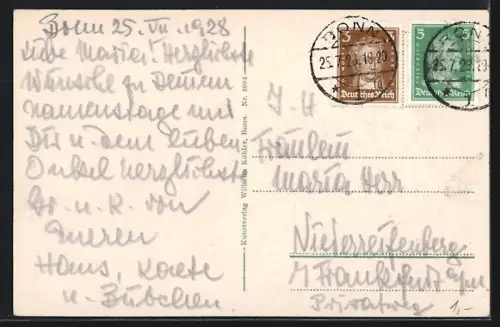 Bonn 25. VII. 1928
Liebe Maria! Herzlichste
Wünsche zu Deinem
Namenstage und
Dir u. dem lieben
Onkel herzlichste
Gr. u. K. von
Eueren
Hans, Kaete
u. Bübchen.
Kunstverlag Wilhelm Köhler, Bonn. Nr.
BONN
25.7.28.18-20
3
Deutsches Reich
5
Deutsches Reich
Fräulein
Maria Herr
Niederreifenberg
Frankfurt a/M
Privatweg
1,-